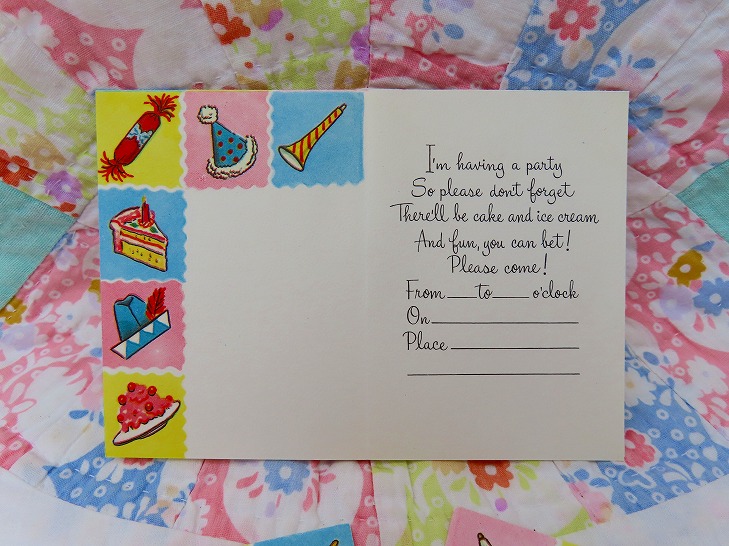 I'm having a party
So please dont forget
There'll be cake and ice cream
And fun, you can bet!
Please come!
From ___ to ____ o'clock
On ____________________
Place _________________